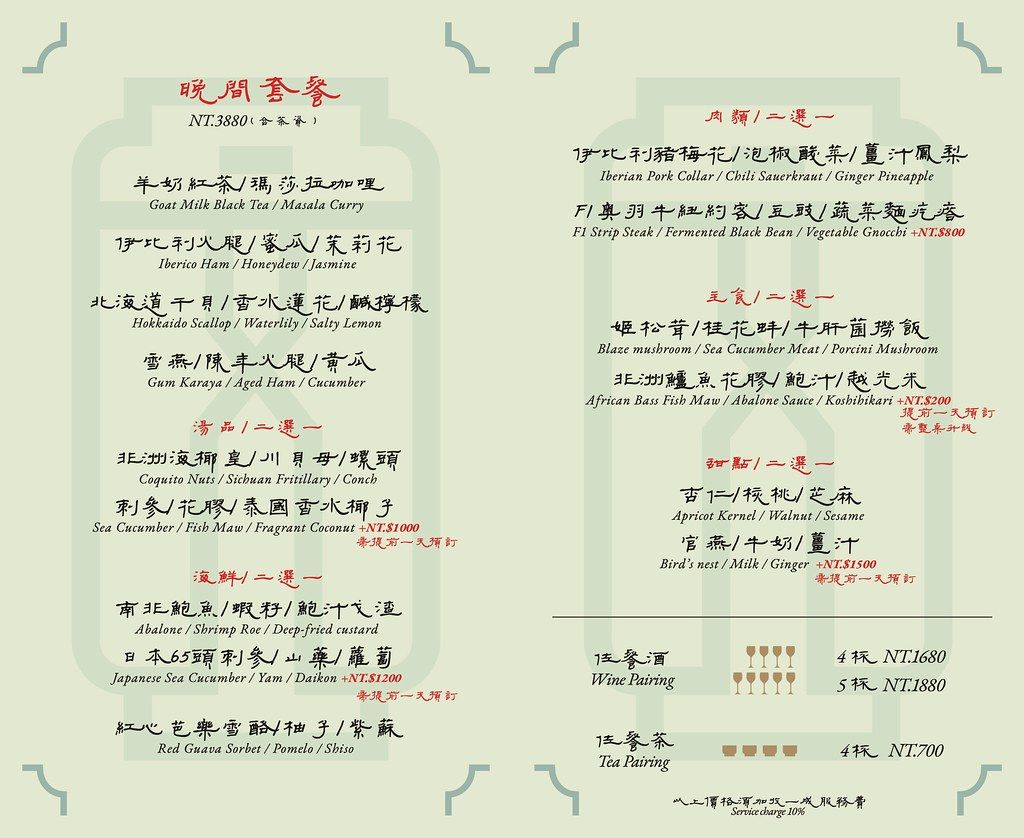 晚間套餐
NT.3880(含茶資)
羊奶紅茶/瑪莎拉咖哩
Goat Milk Black Tea / Masala Curry
伊比利火腿/蜜瓜/茉莉花
Iberico Ham / Honeydew / Jasmine
北海道干貝/香水蓮花/鹹檸檬
Hokkaido Scallop / Waterlily / Salty Lemon
雪燕/陳年火腿/黃瓜
Gum Karaya / Aged Ham / Cucumber
湯品/二選一
非洲海椰皇/川貝母/螺頭
Coquito Nuts / Sichuan Fritillary / Conch
刺參/花膠/泰國香水椰子
Sea Cucumber / Fish Maw / Fragrant Coconut +NT.$1000
需提前一天預訂
海鮮/二選一
南非鮑魚/蝦籽/鮑汁戈渣
Abalone / Shrimp Roe / Deep-fried custard
日本65頭刺參/山藥/蘿蔔
Japanese Sea Cucumber / Yam / Daikon +NT.$1200
需提前一天預訂
紅心芭樂雪酪/柚子/紫蘇
Red Guava Sorbet / Pomelo / Shiso
肉類/二選一
伊比利豬梅花/泡椒酸菜/薑汁鳳梨
Iberian Pork Collar / Chili Sauerkraut / Ginger Pineapple
F1奧羽牛紐約客/豆豉/蔬菜麵疙瘩
F1 Strip Steak / Fermented Black Bean / Vegetable Gnocchi +NT.$800
主食/二選一
姬松茸/桂花蚌/牛肝菌撈飯
Blaze mushroom / Sea Cucumber Meat / Porcini Mushroom
非洲鱸魚花膠/鮑汁/越光米
African Bass Fish Maw / Abalone Sauce / Koshihikari +NT.$200
提前一天預訂
需整桌升級
甜點/二選一
杏仁/核桃/芝麻
Apricot Kernel / Walnut / Sesame
官燕/牛奶/薑汁
Bird's nest / Milk / Ginger +NT.$1500
需提前一天預訂
佐餐酒
Wine Pairing
4杯 NT.1680
5杯 NT.1880
佐餐茶
Tea Pairing
4杯 NT.700
以上價格須加收一成服務費
Service charge 10%